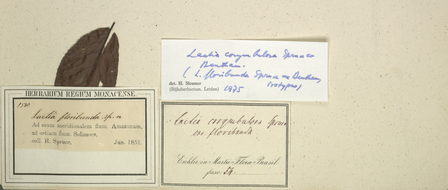 Laetia corymbulosa Spruce ex
Bentham.
( L. floribunda Spruce ex Bentham,
isotypus)
det. H. Sleumer
(Rijksherbarium, Leiden) 1975
HERBARIUM REGIUM MONACENSE.
Laetia floribunda sp. n.
Ad oram meridionalem flum. Amazonum,
ad ostium flum. Solimoes.
coll. R. Spruce, Jan. 1851.
Laetia corymbulosa Spruce
var. floribunda
Eichler in Martii Flora Brasil
fasc. 54.